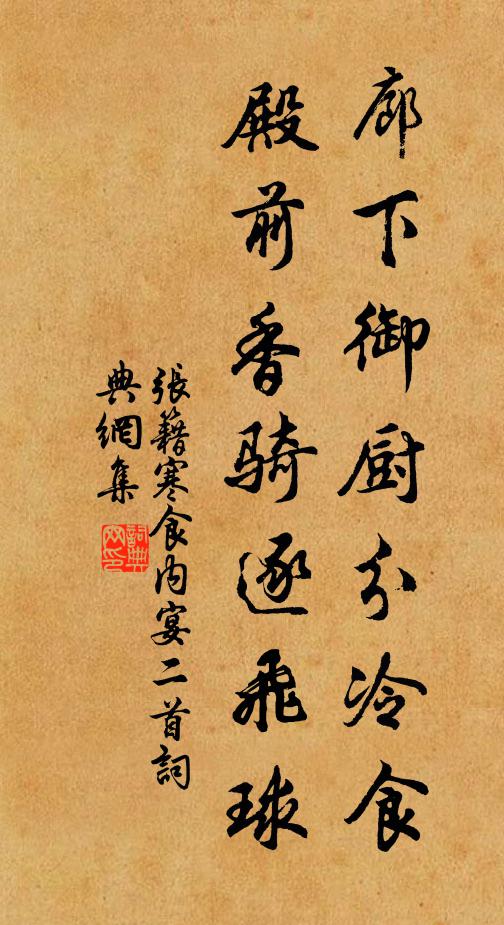 廊下御廚分冷食
殿前香騎逐飛球
張籍寒食內宴二首詞
典網集
詞典網印